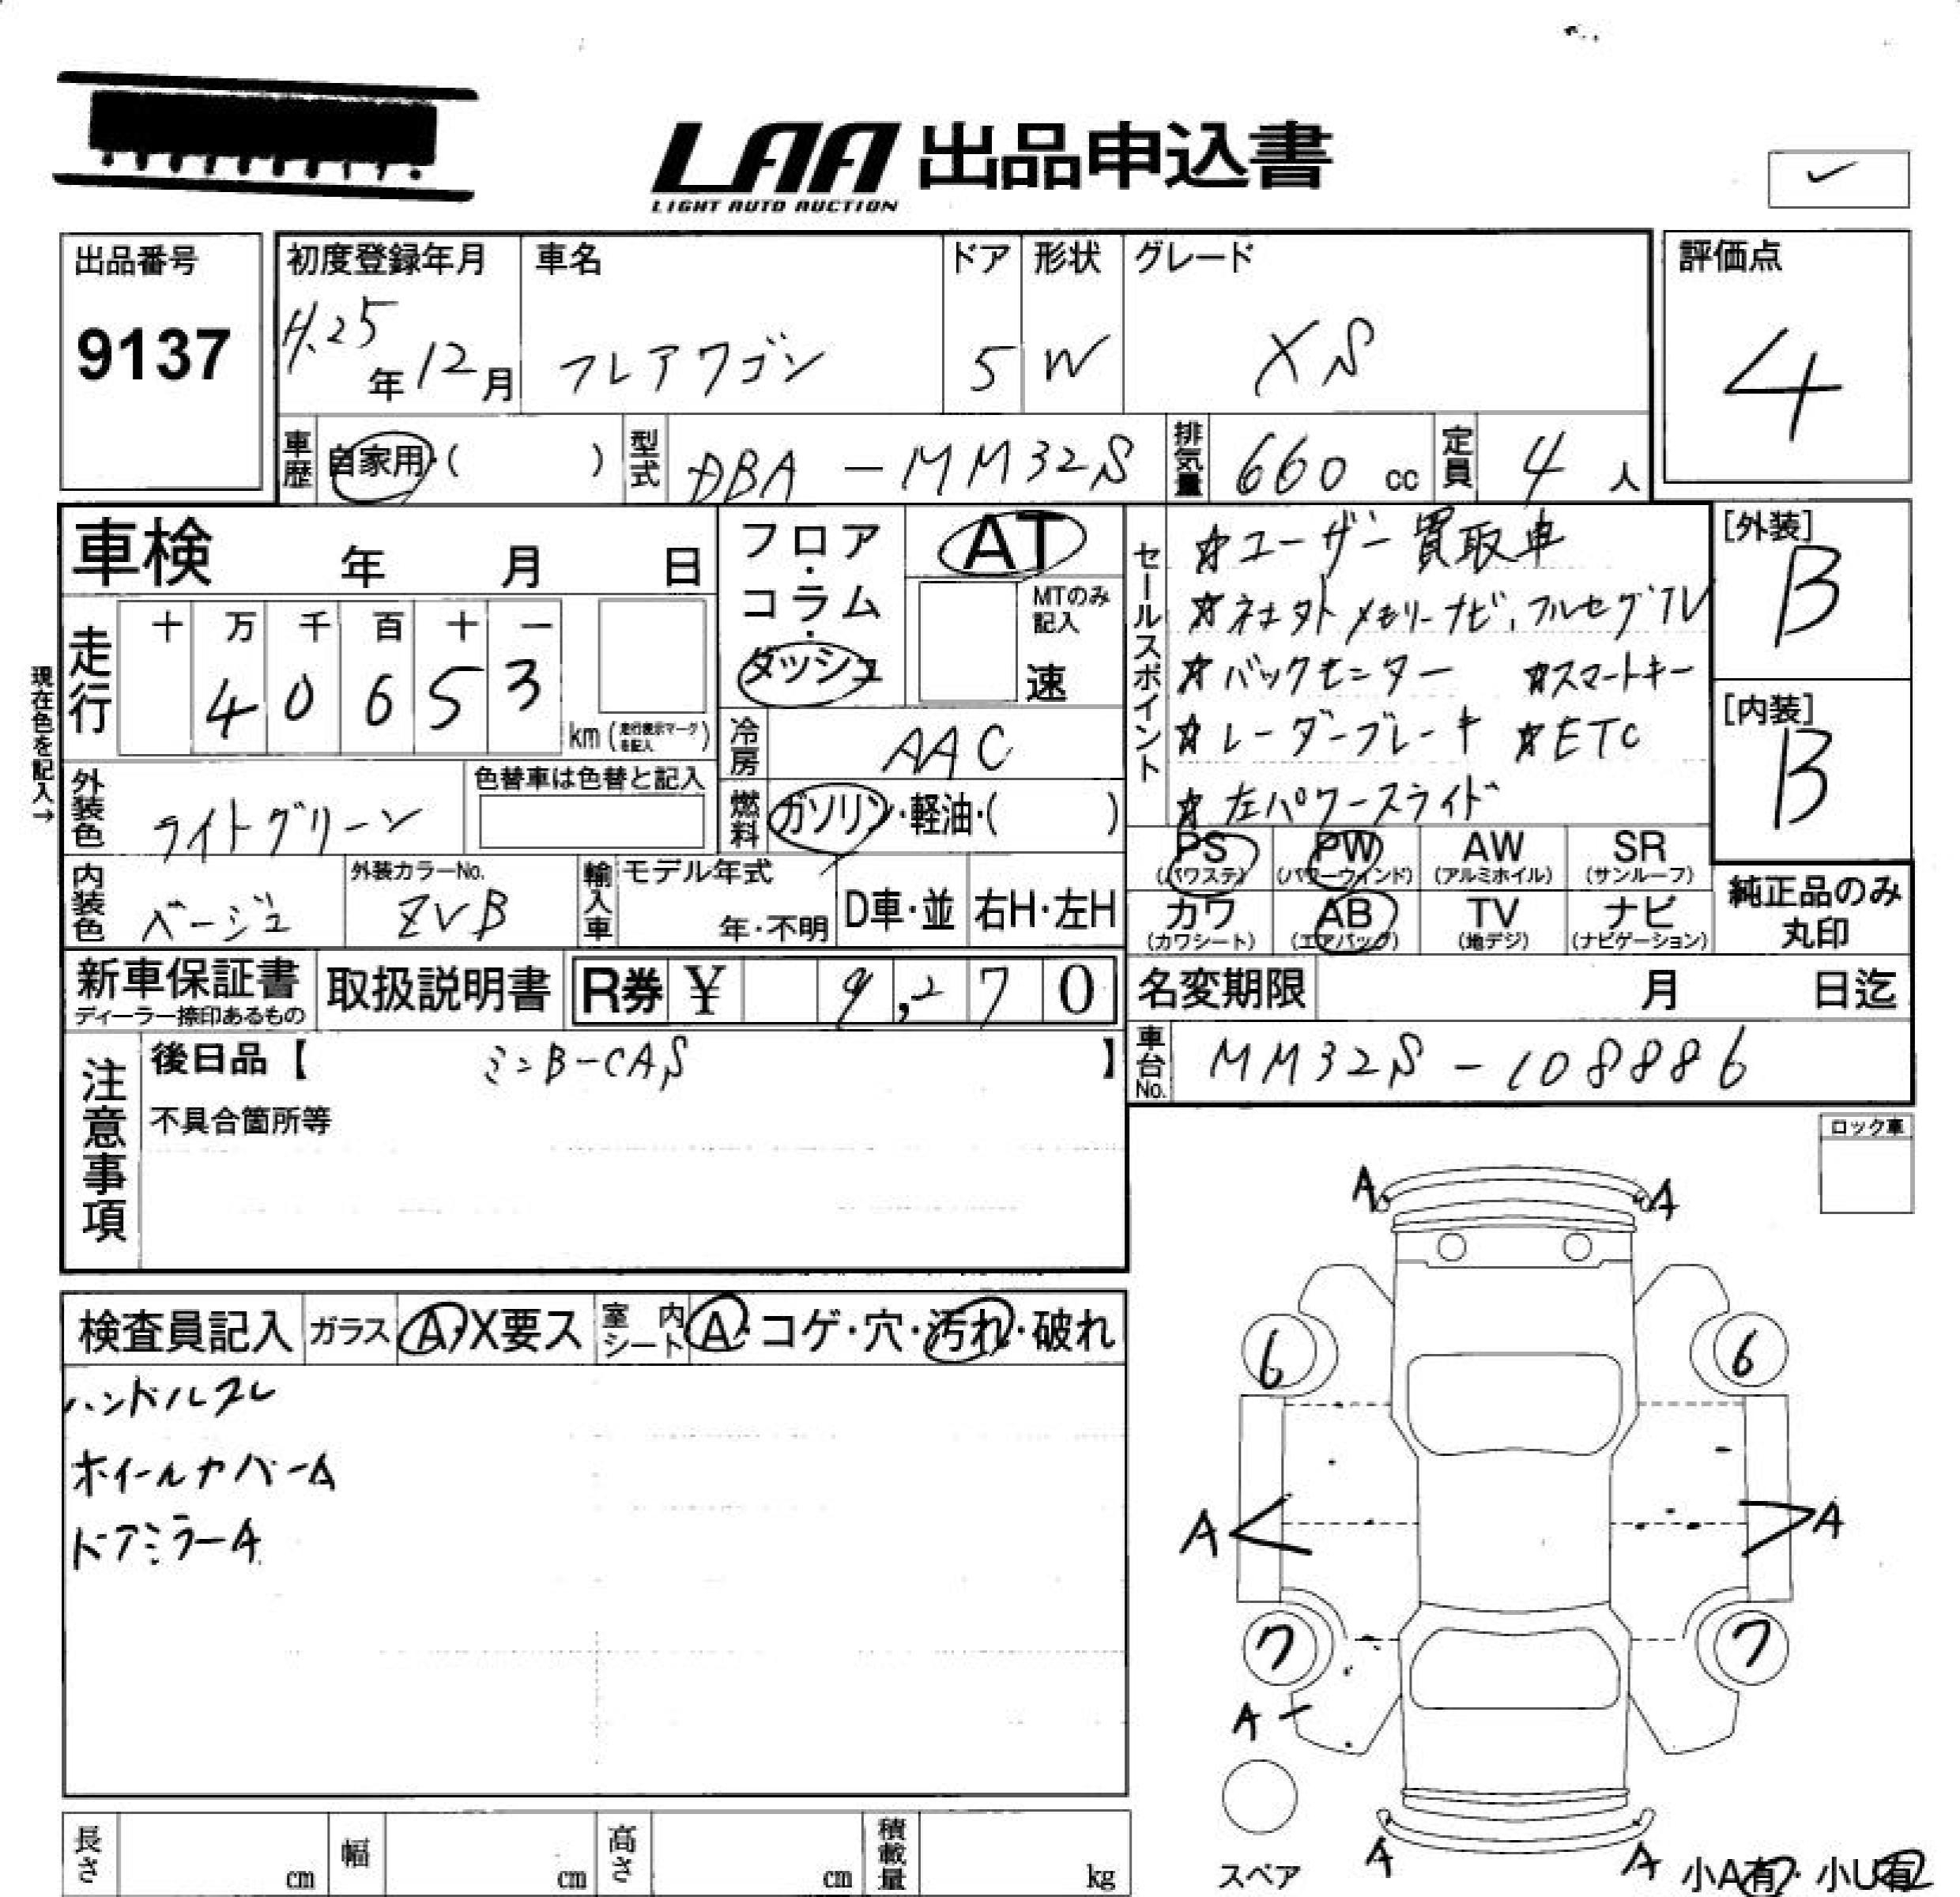 LAA 出品申込書
LIGHT AUTO AUCTION
出品番号
9137
初度登録年月
H.25年12月
車名
フレアワゴン
ドア
5
形状
W
グレード
XS
評価点
4
車歴 自家用・( )
型式 DBA-MM32S
排気量 660 cc
定員 4 人
車検 年 月 日
現在色を記入→
走行
十 万 千 百 十 一
4 0 6 5 3
km (走行表示マークを記入)
フロア・コラム・ダッシュ
AT
MTのみ記入
速
冷房 AAC
燃料 ガソリン・軽油・( )
外装色 ライトグリーン
色替車は色替と記入
内装色 ベージュ
外装カラーNo.
ZVB
輸入車
モデル年式
年・不明
D車・並
右H・左H
セールスポイント
☆ユーザー買取車
メモリーナビ、フルセグTV
☆バックモニター ☆スマートキー
☆レーダーブレーキ ☆ETC
☆左パワースライド
[外装]
B
[内装]
B
PS (パワステ)
PW (パワーウィンド)
AW (アルミホイル)
SR (サンルーフ)
カワ (カワシート)
AB (エアバッグ)
TV (地デジ)
ナビ (ナビゲーション)
純正品のみ丸印
新車保証書
ディーラー捺印あるもの
取扱説明書
R券 ¥ 9,270
名変期限 月 日迄
車台No. MM32S-108886
注意事項
後日品【 ミニB-CAS 】
不具合箇所等
ロック車
検査員記入
ガラス A・X要ス
室内シート A・コゲ・穴・汚れ・破れ
ハンドルスレ
ホイールカバーA
ドアミラーA
A A
6 6
A A
7 7
A
A A
スペア
小A有・小U有
長さ cm
幅 cm
高さ cm
積載量 kg